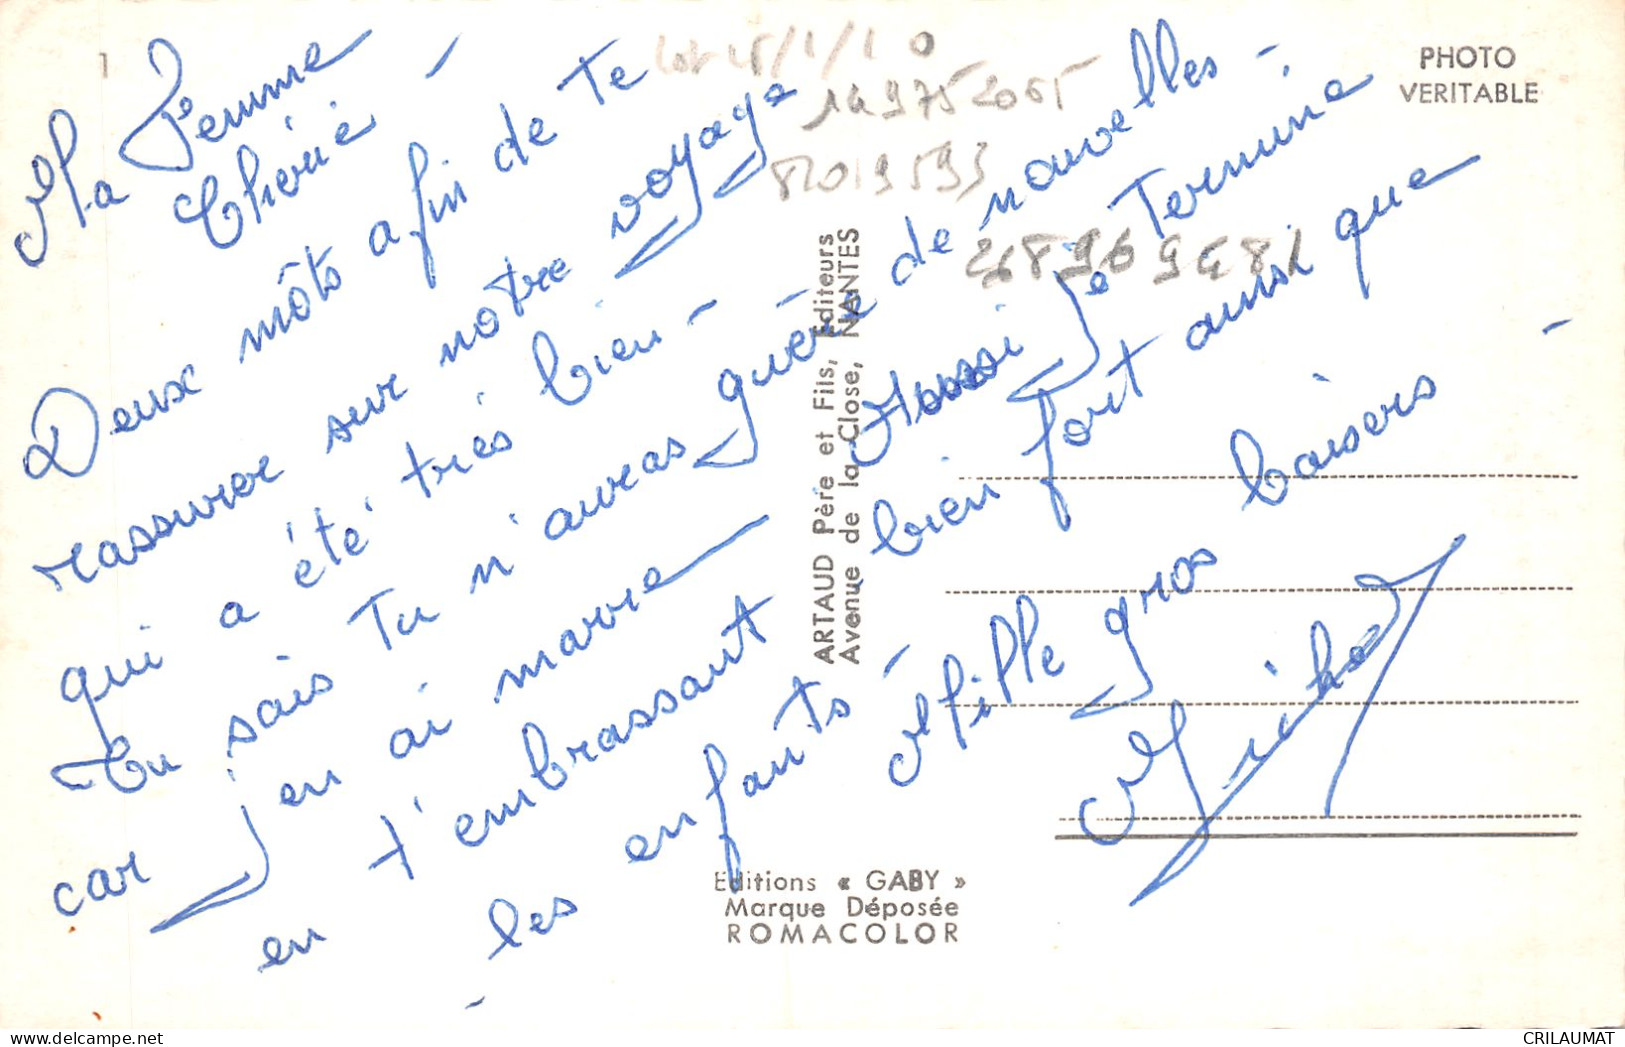 Ma Femme
Chérie -
Deux môts afin de te
rassurer sur notre voyage
qui a été très bien -
Tu sais Tu n'auras guère de nouvelles -
car J'en ai marre Aussi Je Termine
en t'embrassant bien fort ainsi que
- les enfants - Mille gros baisers -
Michel
PHOTO
VERITABLE
14975 2065
82019593
ARTAUD Père et Fils, Editeurs
Avenue de la Close, NANTES
Editions « GABY »
Marque Déposée
ROMACOLOR
CRILAUMAT